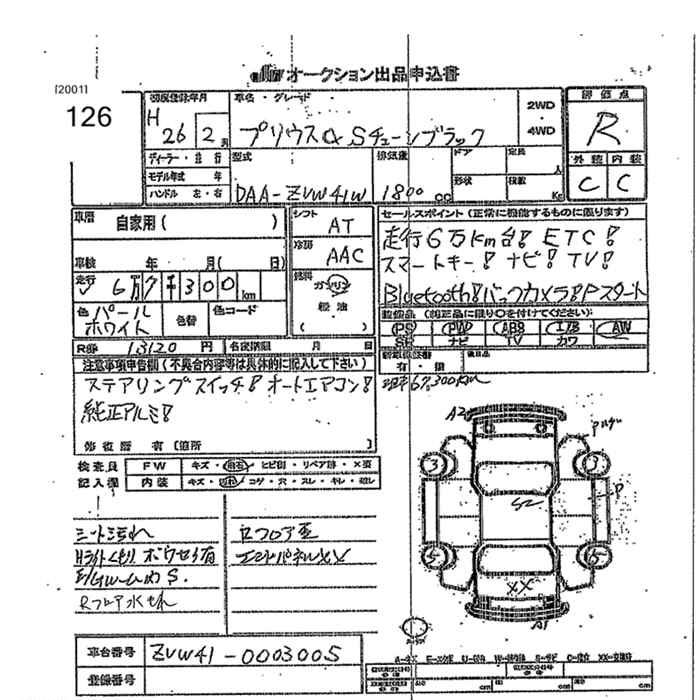 オークション出品申込書
[2001]
126
初度登録年月
H 26 2 月
車名・グレード
プリウスα Sチューンブラック
2WD
・
4WD
評価点
R
外装 内装
C C
ディーラー・並行
モデル年式 年
ハンドル 左・右
型式
DAA-ZVW41W
排気量
1800 cc
ドア
定員
人
形状
積載
Kg
車歴 自家用( )
車検 年 月( 日)
走行 6万7千300km
シフト AT
冷房 AAC
燃料
ガソリン
軽油
( )
色 パールホワイト
色替
色コード
R券 13120 円
名変期限 月 日
セールスポイント(正常に機能するものに限ります)
走行6万km台! ETC!
スマートキー! ナビ! TV!
Bluetooth! バックカメラ! Pスタート
装備品(純正品に限り○を付けてください)
PS PW ABS エアB AW
SR ナビ TV カワ
有・無
後日品
67,300km
注意事項申告欄(不具合内容等は具体的に記入して下さい)
ステアリングスイッチ! オートエアコン!
純正アルミ!
修復歴 有 [箇所 ]
検査員
記入欄
FW キズ・飛石・ヒビ割・リペア跡・X要
内装 キズ・切れ・コゲ・穴・スレ・キレ・破レ
シート汚れ
Hライトくもり
Rフロア歪
エンドパネルXX
A2
3
3
P
S2
5
5
XX
A1
車台番号 ZVW41-0003005
登録番号
cm
cm